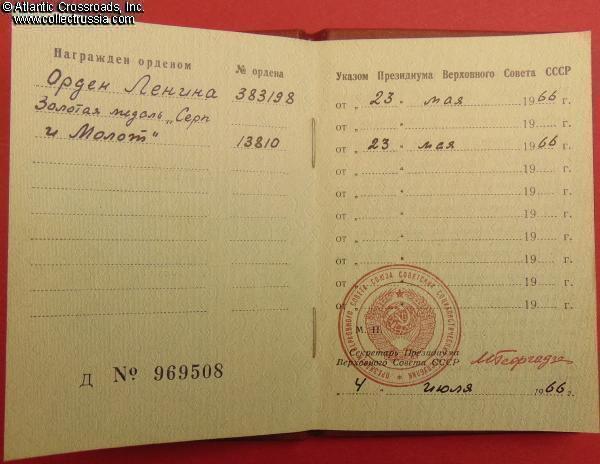 © Atlantic Crossroads, Inc.
www.collectrussia.com
Награжден орденом
№ ордена
Орден Ленина 383198
Золотая медаль „Серп
и Молот" 13810
Д № 969508
Указом Президиума Верховного Совета СССР
от „ 23 " мая 1966 г.
от „ "  19 г.
от „ 23 " мая 1966 г.
от „ " 19 г.
от „ " 19 г.
от „ " 19 г.
от „ " 19 г.
от „ " 19 г.
от „ " 19 г.
от „ " 19 г.
ПРЕЗИДИУМ ВЕРХОВНОГО СОВЕТА СОЮЗА СОВЕТСКИХ СОЦИАЛИСТИЧЕСКИХ РЕСПУБЛИК
М. П.
Секретарь Президиума
Верховного Совета СССР
МГеоргадзе
„ 4 " июля 1966 г.